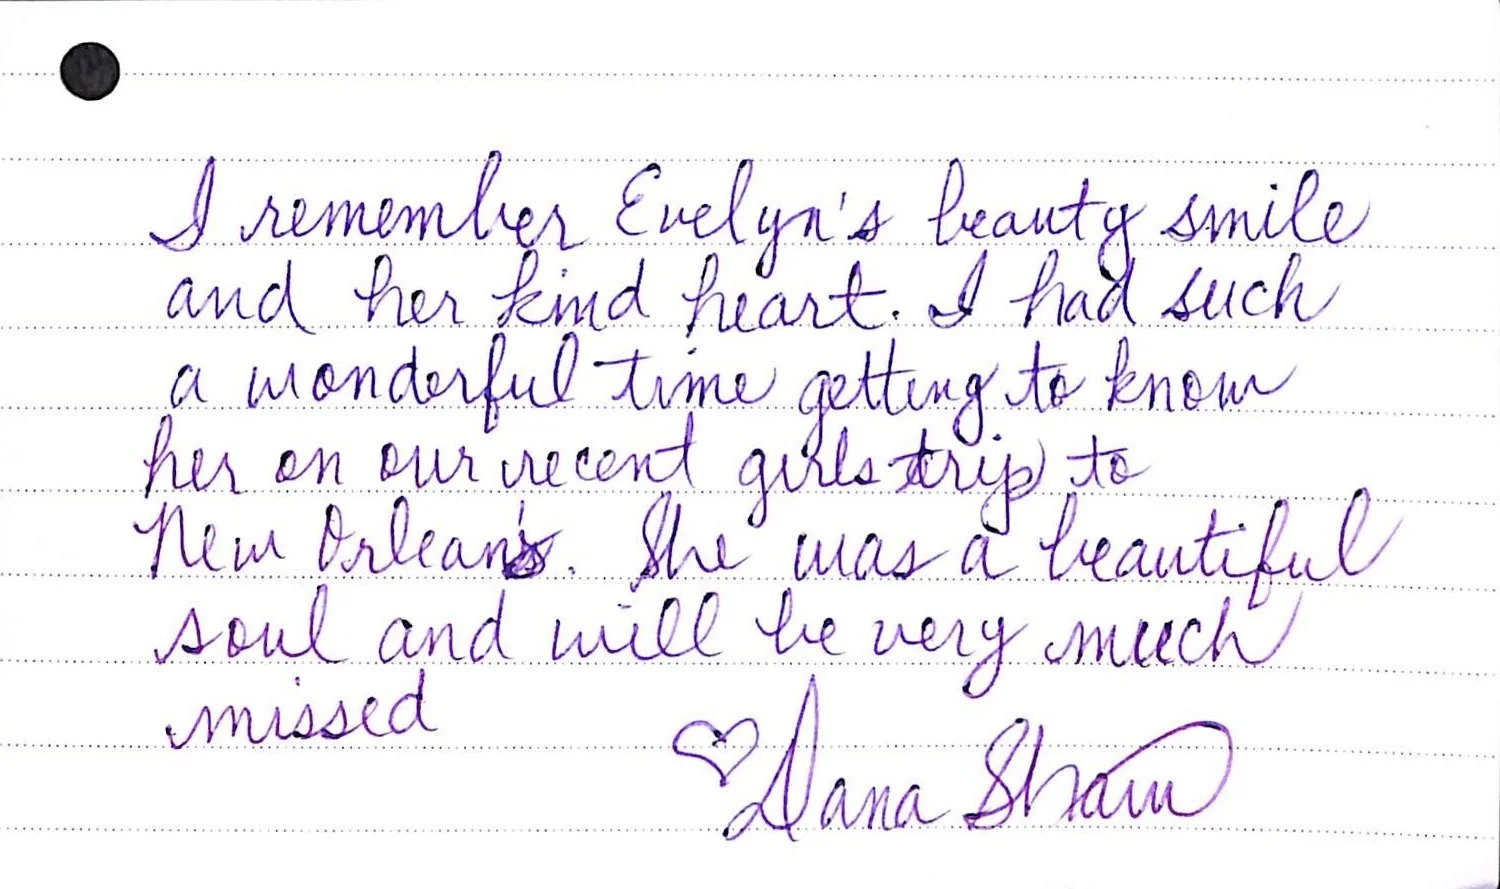 I remember Evelyn's beauty smile
and her kind heart. I had such
a wonderful time getting to know
her on our recent girls trip to
New Orleans. She was a beautiful
soul and will be very much
missed
♡Dana Shaw